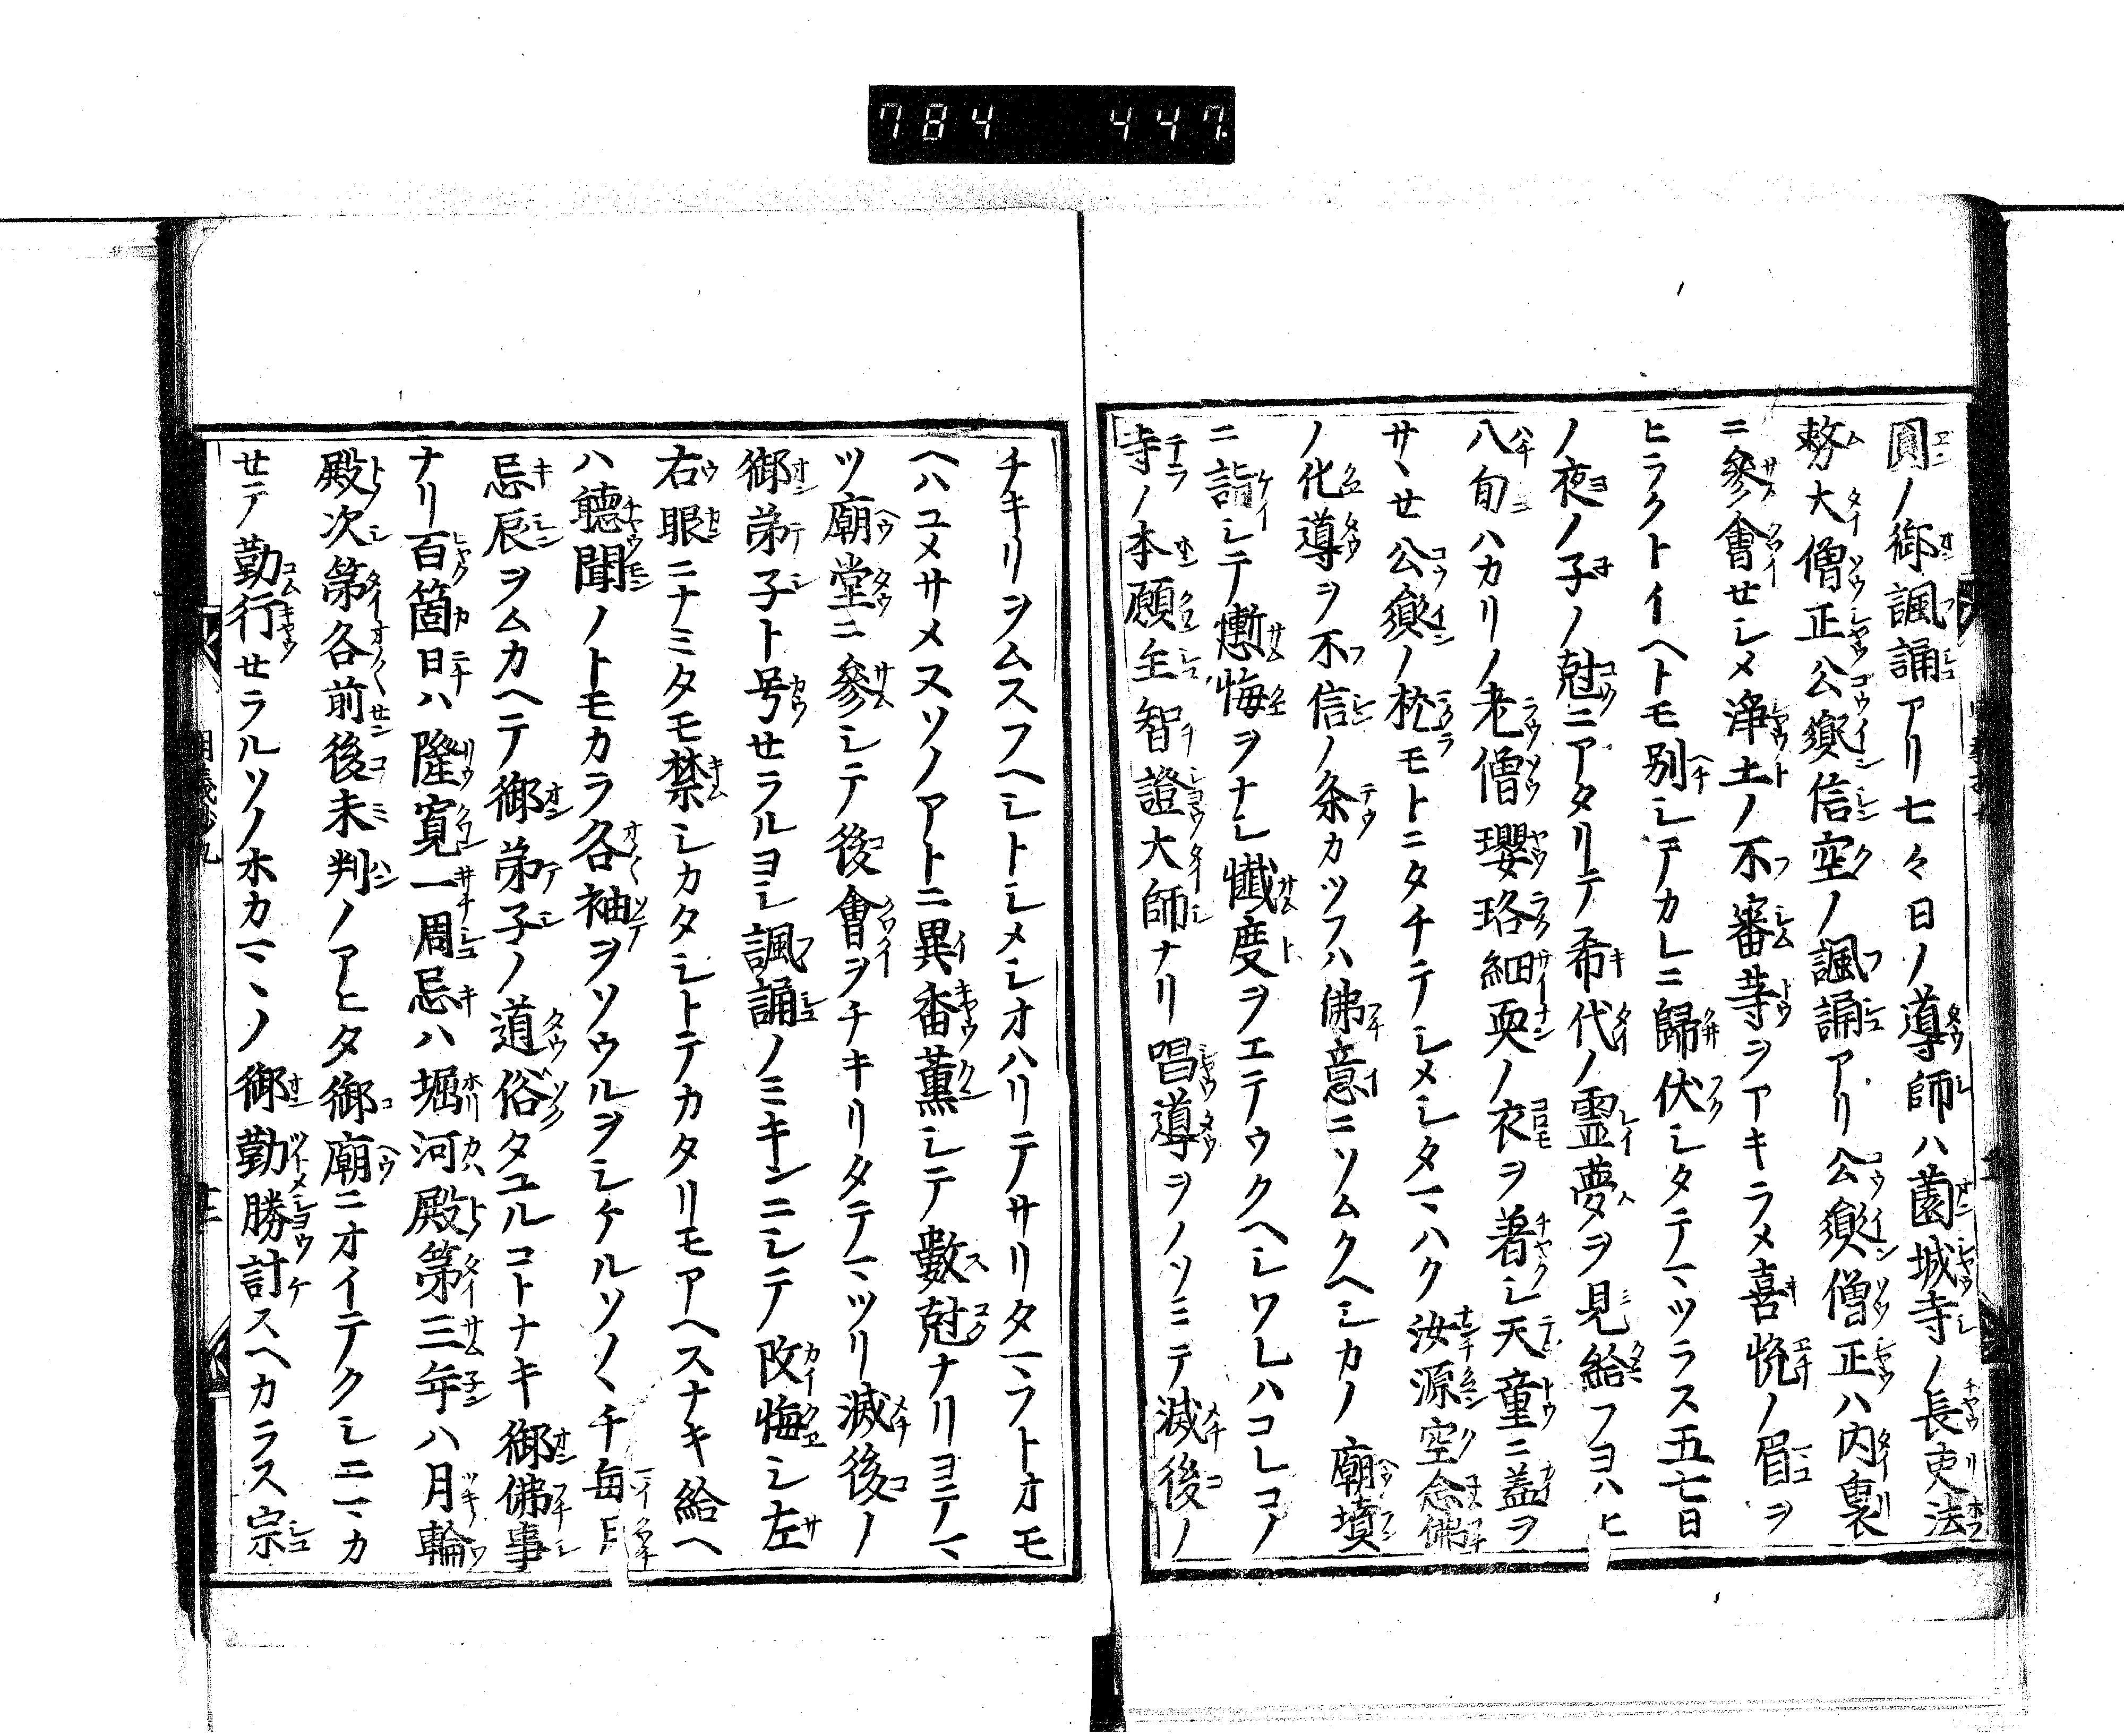 784 447
圓ノ御諷誦アリ七々日ノ導師ハ薗城寺ノ長吏法
務大僧正公胤信空ノ諷誦アリ公胤僧正ハ内裏
ニ參會セシメ淨土ノ不審等ヲアキラメ喜悦ノ眉ヲ
ヒラクトイヘトモ別シテカレニ歸伏シタテマツラス五七日
ノ夜ノ子ノ尅ニアタリテ希代ノ霊夢ヲ見給フヨハヒ
八旬ハカリノ老僧瓔珞細耎ノ衣ヲ著シ天童ニ蓋ヲ
サヽセ公胤ノ枕モトニタチテシメシタマハク汝源空念佛
ノ化導ヲ不信ノ条カツフハ佛意ニソムクヘシカノ廟墳
ニ詣シテ慙悔ヲナシ懺度ヲエテウクヘシワレハコレコノ
寺ノ本願主智證大師ナリ唱導ヲノソミテ滅後ノ
チキリヲムスフヘシトシメシオハリテサリタマフトオモ
ヘハユメサメヌソノアトニ異香薫シテ數尅ナリヨテマ
ツ廟堂ニ參シテ後會ヲチキリタテマツリ滅後ノ
御弟子ト号セラルヨシ諷誦ノミキンニシテ改悔シ左
右眼ニナミタモ禁シカタシトテカタリモアヘスナキ給ヘ
ハ聴聞ノトモカラ各袖ヲソウルヲシケルソノヽチ毎月
忌辰ヲムカヘテ御弟子ノ道俗タユルコトナキ御佛事
ナリ百箇日ハ隆寛一周忌ハ堀河殿第三年ハ月輪
殿次第各前後未判ノアヒタ御廟ニオイテクシニマカ
セテ勤行セラルソノホカマヽノ御勤勝計スヘカラス宗